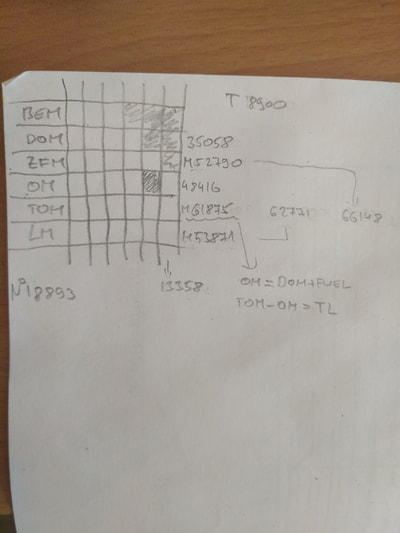 T 8900
BEM
DOM 35058
ZFM M52790
OM 48416
TOM M61875 62771 66148
LM M53871
N°18893 13358
OM = DOM+FUEL
TOM-OM = TL